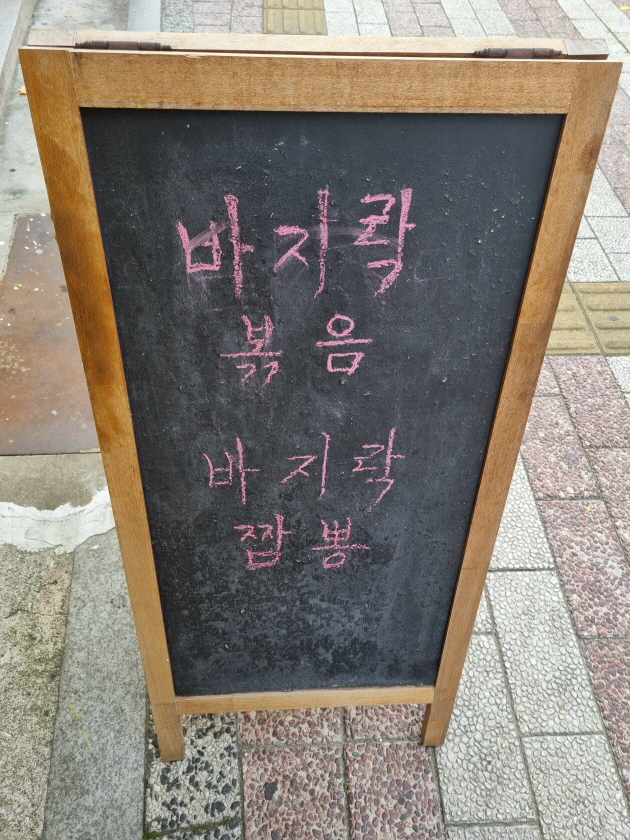 바지락
볶음
바지락
짬뽕